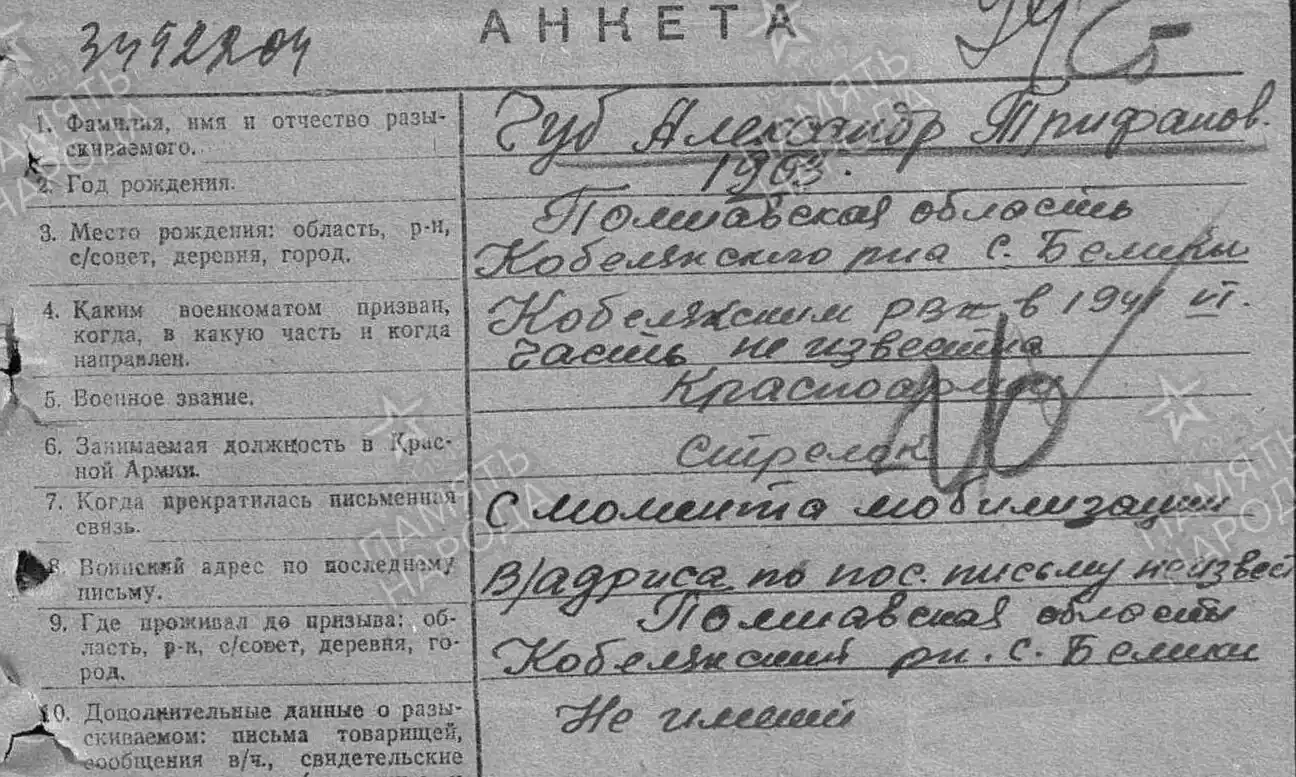 АНКЕТА
3492204
1. Фамилия, имя и отчество разы-
скиваемого.
Чуб Александр Трифанов.
2. Год рождения.
1903.
3. Место рождения: область, р-н,
с/совет, деревня, город.
Полтавская область
Кобелякского рна с. Белики
4. Каким военкоматом призван,
когда, в какую часть и когда
направлен.
Кобелякским рвк в 1941 VI.
часть не известна
5. Военное звание.
Красноарм
6. Занимаемая должность в Крас-
ной Армии.
стрелок
7. Когда прекратилась письменная
связь.
С момента мобилизации
8. Воинский адрес по последнему
письму.
В/адриса по пос. письму неизвест
9. Где проживал до призыва: об-
ласть, р-н, с/совет, деревня, го-
род.
Полтавская область
Кобелякский рн. с. Белики
10. Дополнительные данные о разы-
скиваемом: письма товарищей,
сообщения в/ч., свидетельские
Не имеит
ПАМЯТЬ
НАРОДА
ПАМЯТЬ
НАРОДА
ПАМЯТЬ
НАРОДА
ПАМЯТЬ
НАРОДА